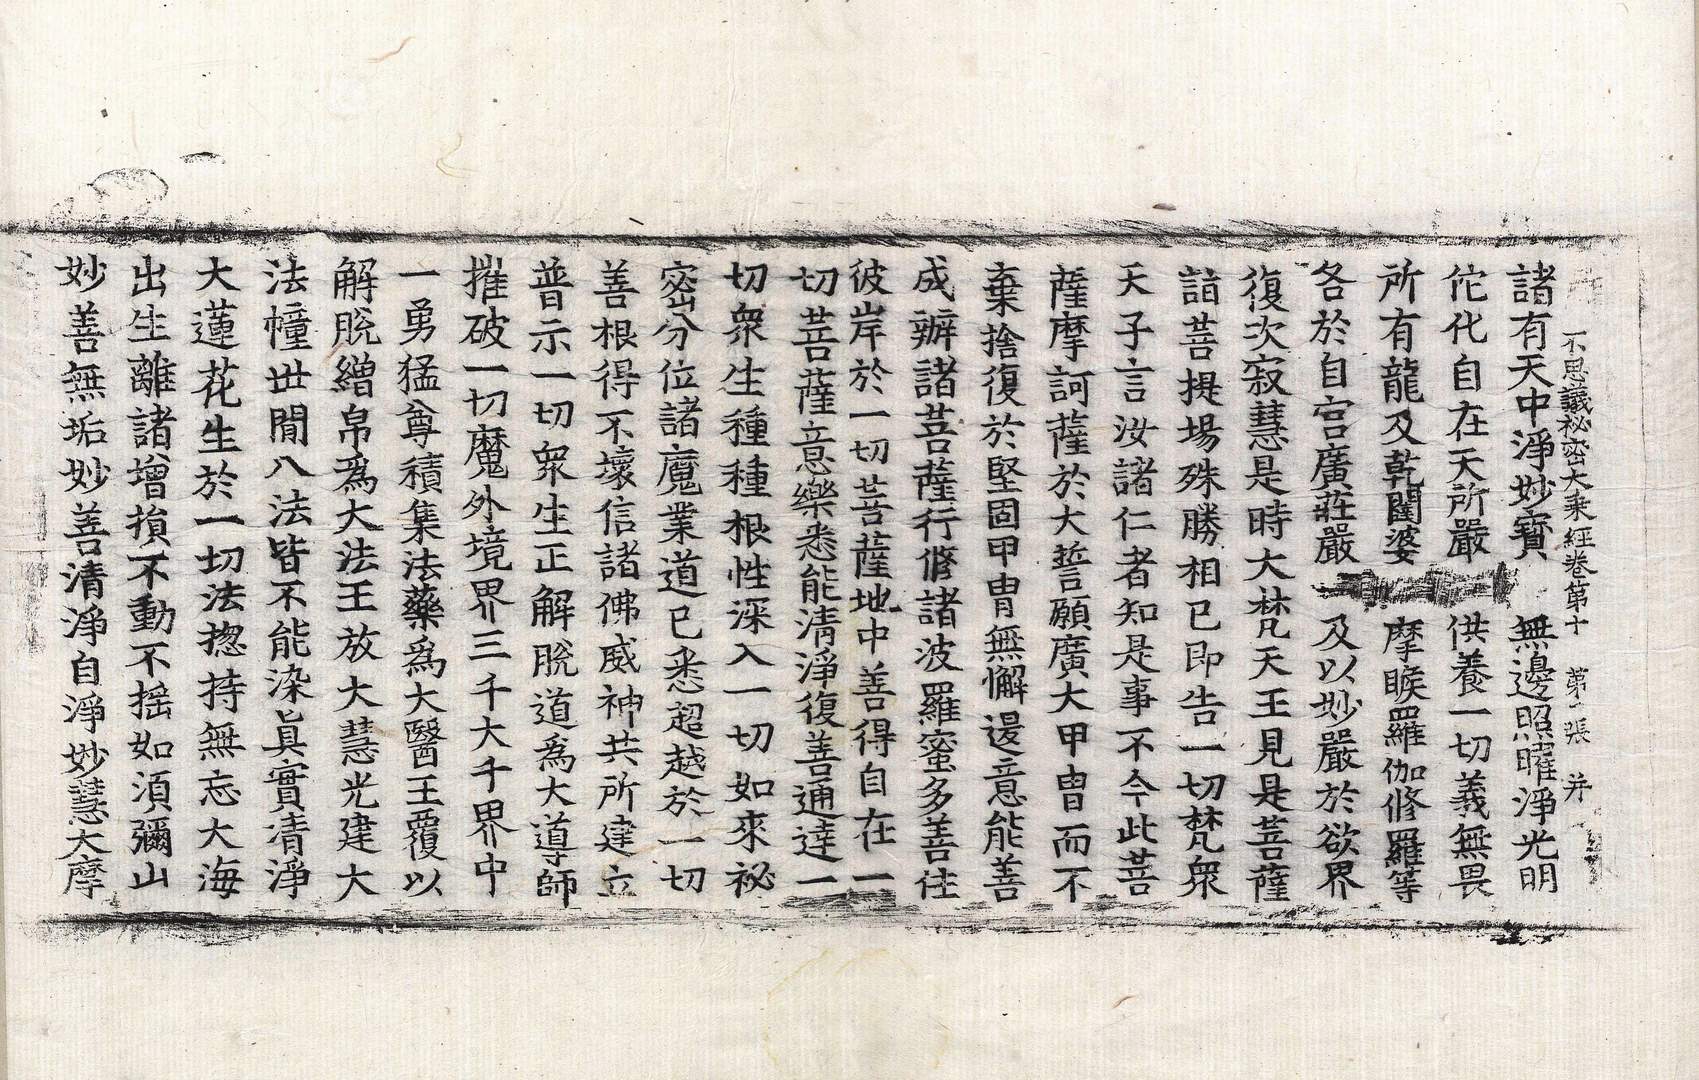 不思議秘密大乘經卷第十 第二張 并
諸有天中淨妙寶 無邊照曜淨光明
佗化自在天所嚴 供養一切義無畏
所有龍及乾闥婆 摩睺羅伽修羅等
各於自宮廣莊嚴 及以妙嚴於欲界
復次寂慧是時大梵天王見是菩薩
詣菩提場殊勝相已即告一切梵衆
天子言汝諸仁者知是事不今此菩
薩摩訶薩於大誓願廣大甲冑而不
棄捨復於堅固甲冑無懈邊意能善
成辦諸菩薩行修諸波羅蜜多善住
彼岸於一切菩薩地中善得自在一
切菩薩意樂悉能清淨復善通達一
切衆生種種根性深入一切如來祕
密分位諸魔業道已悉超越於一切
善根得不壞信諸佛威神共所建立
普示一切衆生正解脫道為大導師
摧破一切魔外境界三千大千界中
一勇猛尊積集法藥爲大醫王覆以
解脫繒帛爲大法王放大慧光建大
法幢世閒八法皆不能染眞實清淨
大蓮花生於一切法揔持無忘大海
出生離諸增損不動不揺如須彌山
妙善無垢妙善清淨自淨妙慧大摩